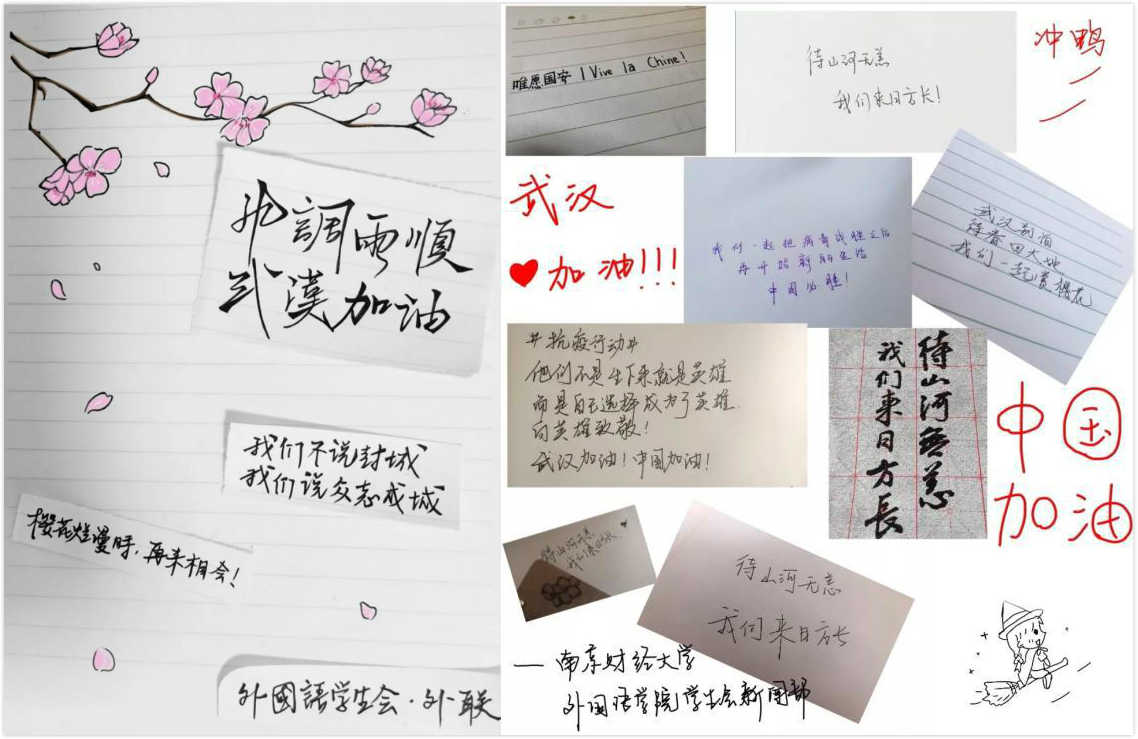 風調雨順
武漢加油
我们不说封城
我们说众志成城
樱花烂漫时，再来相会！
外國語学生会·外联
唯愿国安 | Vive la Chine!
待山河无恙
我们来日方长!
冲鸭
武汉
加油!!!
我们一起把病毒战胜之后
再开始新的生活
中国必胜!
武汉别怕
待春回大地
我们一起赏樱花
#抗疫行动#
他们不是生下来就是英雄
而是自己选择成为了英雄.
向英雄致敬!
武汉加油!中国加油!
待山河無恙
我们来日方長
中国
加油
待山河无恙,
我们来日方长.
待山河无恙
我们来日方长
— 南京财经大学
外国语学院学生会新闻部